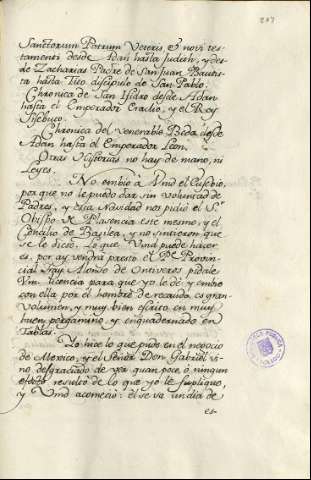 207
Sanctorum Patrum Veteris, & novi tes-
tamenti desde Adan hasta Judah, y des-
de Zacharias Padre de San Juan Bautis
ta hasta Tito discipulo de San Pablo.
Chronica de San Isidro desde Adan
hasta el Emperador Eraclio, y el Rey
Sisebuto.
Chronica del venerable Beda desde
Adan hasta el Emperador Leon.
Otras Historias no hay de mano, ni
Leyes.
No embio à Vmd el Eusebio,
porque no le puedo dar sin voluntad de
Padres, y esta Navidad nos pidiò el Sr.
Obispo de Plasencia este mesmo, y el
Concilio de Basilea, y no sintieron que
se le diese. Lo que Vmd puede hacer
es, por ay vendrà presto el Pe. Provin-
cial Fray Alonso de Ontiveros pidale
Vm. licencia para que yo le dè, y embie
con ella por èl hombre de recaudo, es gran
volumen, y muy bien escrito en muy
buen pergamino, y enquadernado en
Tablas.
Yo hice lo que pude en el negocio
de Mexico, y el Señor Don Gabriel vi-
no desgraciado de ver quan poco, ò ningun
efecto resultò de lo que yo le supliquè,
y Vmd acometiò: èl se va un dia de
es-